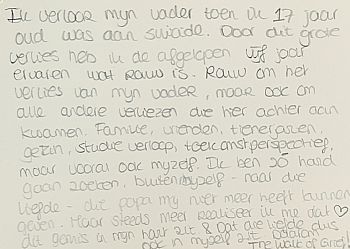 Ik verloor mijn vader toen ik 17 jaar
oud was aan suïcide. Door dit grote
verlies heb ik de afgelopen vijf jaar
ervaren wat Rauw is. Rauw om het
verlies van mijn vader, maar ook om
alle andere verliezen die hier achter aan
kwamen. Familie, vrienden, tienerjaren,
gezin, studie verloop, toekomstperspectief,
maar vooral ook mijzelf. Ik ben zo hard
gaan zoeken, buiten mijzelf - naar die
liefde - die papa mij niet meer heeft kunnen
geven. Maar steeds meer realiseer ik me dat ♡
dit gemis in mijn hart zit & dat die liefde dus
ook in mijzelf zit